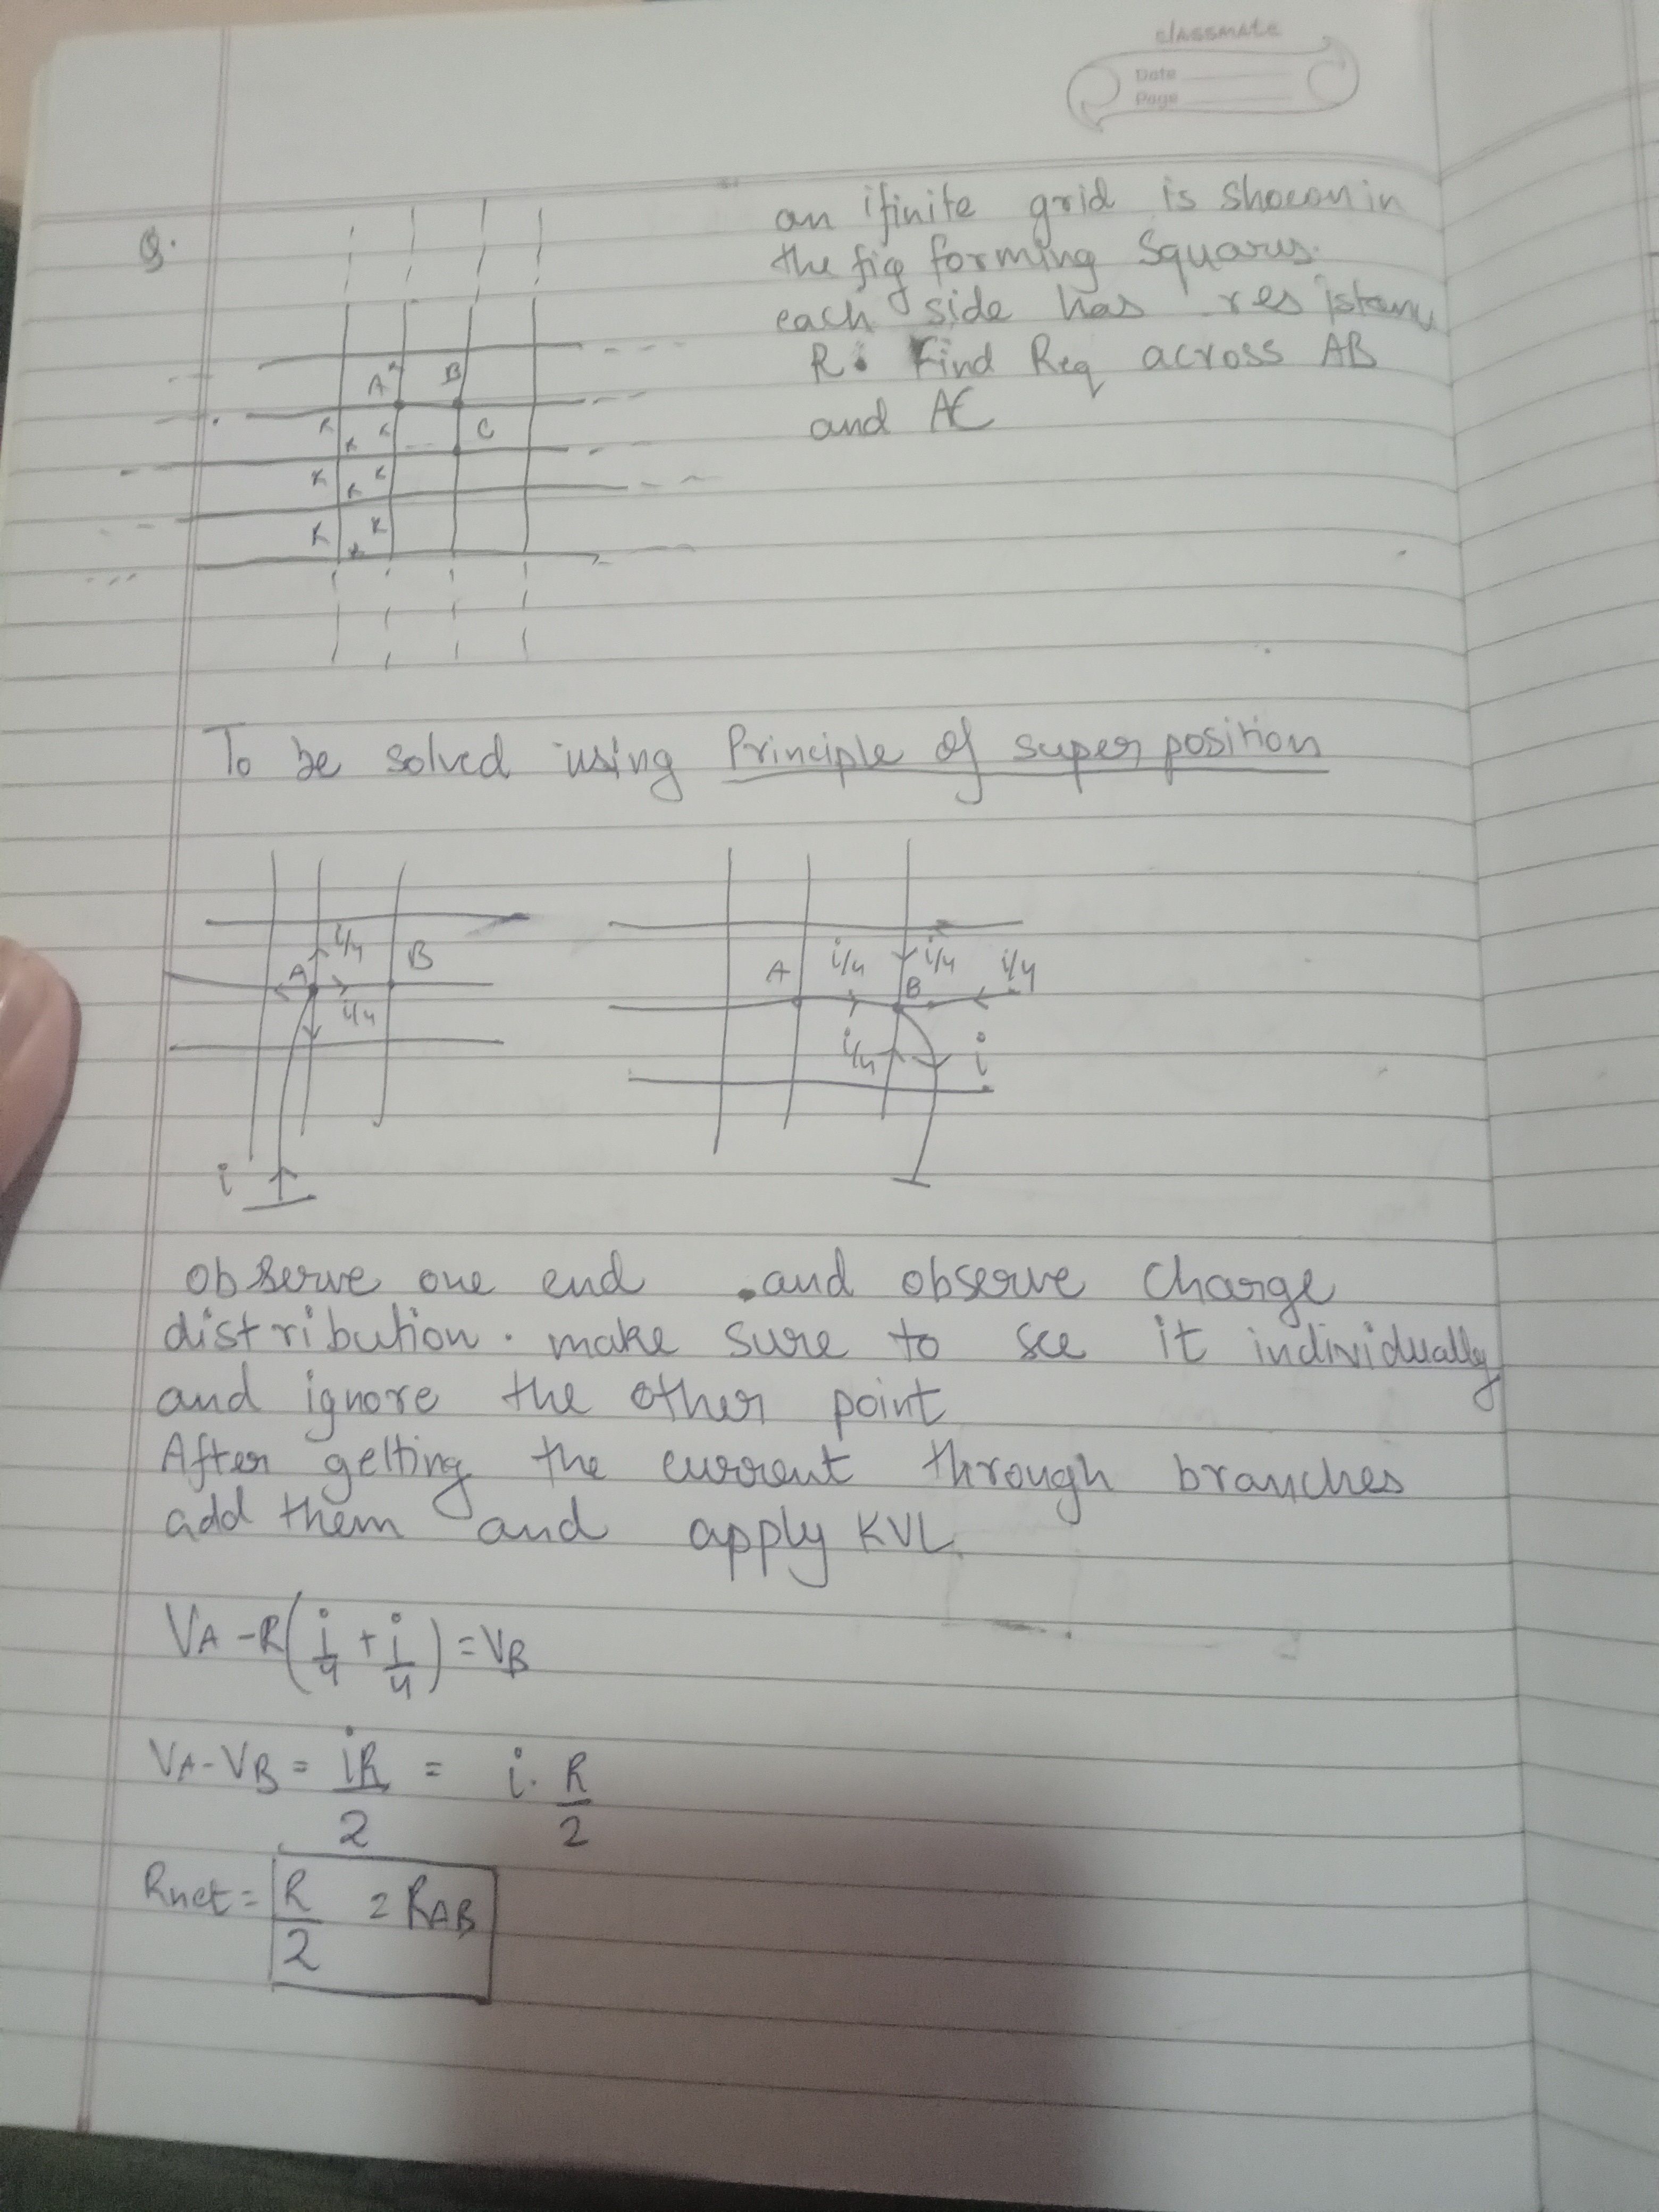 classmate
Date
Page
Q.
an ifinite grid is shown in
the fig forming Squares.
each side has resistance
R. Find Req across AB
and AC
A B
C
R R R
R R R
R R
To be solved using Principle of super position
i/4
A B
i/4
i
A i/4 i/4 i/4
B
i/4 i
observe one end and observe charge
distribution. make sure to see it individually
and ignore the other point
After getting the current through branches
add them and apply KVL
VA - R(i/4 + i/4) = VB
VA - VB = iR/2 = i. R/2
Rnet = R/2 = RAB